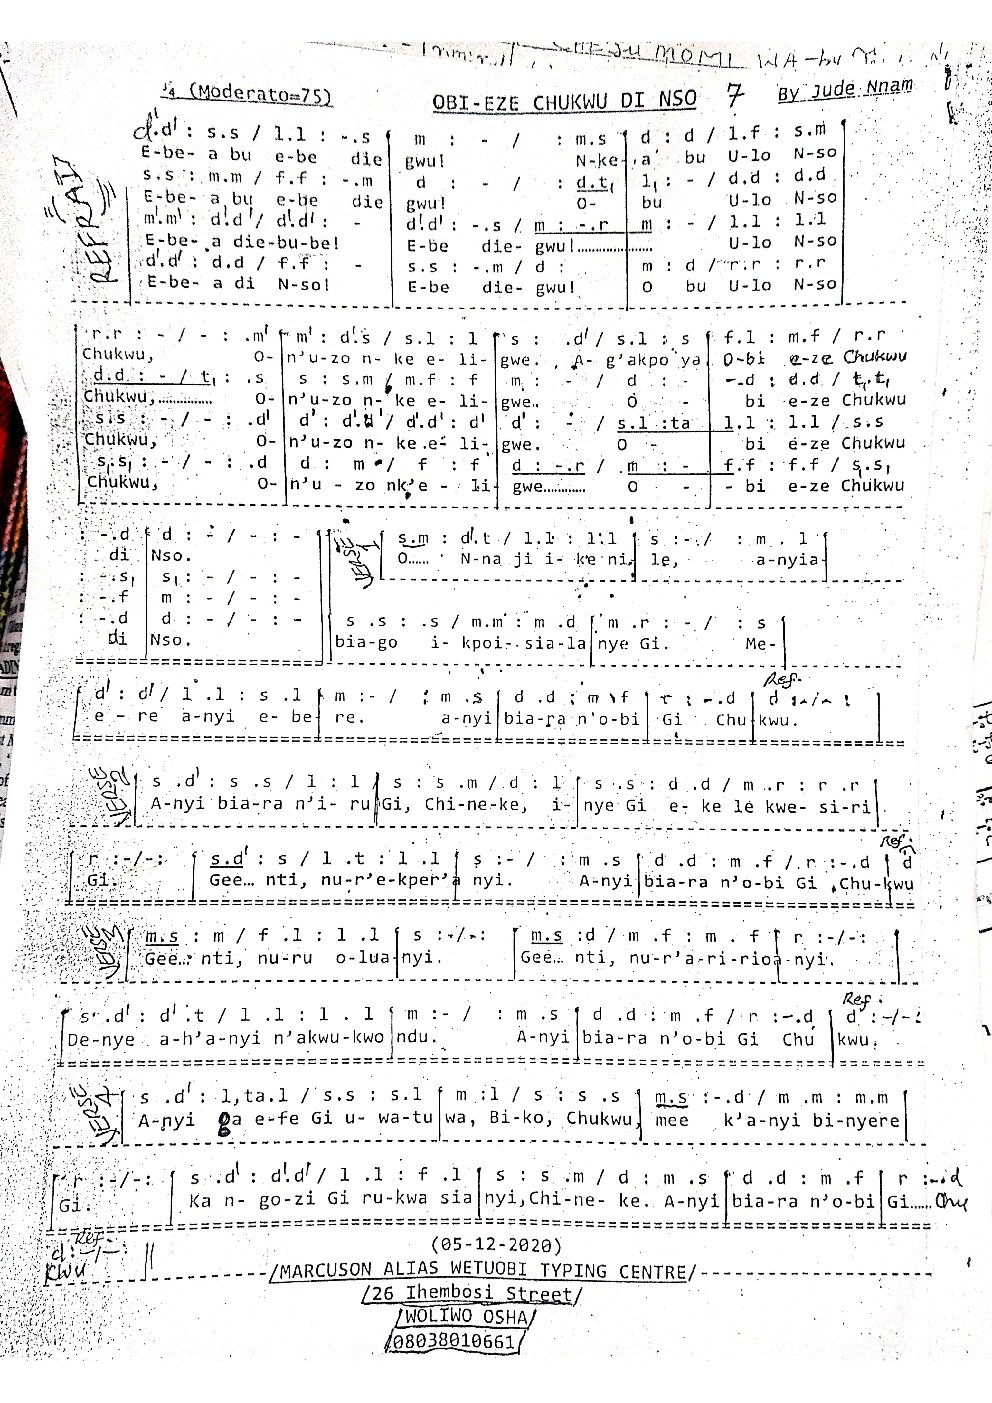 (Moderato=75) OBI-EZE CHUKWU DI NSO 7 By Jude Nnam
REFRAIN
d'.d' : s.s / l.l : -.s | m : - / : m.s | d : d / l.f : s.m
E-be- a bu e-be die | gwu! N-ke- a bu U-lo N-so
s.s : m.m / f.f : -.m | d : - / : d.t, | l, : - / d.d : d.d
E-be- a bu e-be die | gwu! O- bu U-lo N-so
m'.m' : d'.d' / d'.d' : - | d'.d' : -.s / m : -.r | m : - / l.l : l.l
E-be- a die-bu-be! | E-be die- gwu!.............. U-lo N-so
d'.d' : d.d / f.f : - | s.s : -.m / d : | m : d / r.r : r.r
E-be- a di N-so! | E-be die- gwu! | O bu U-lo N-so
r.r : - / - : .m' | m' : d'.s / s.l : l | s : .d' / s.l : s | f.l : m.f / r.r
Chukwu, O- | n'u-zo n- ke e- li- | gwe. A- g'akpo ya | O-bi e-ze Chukwu
d.d : - / t, : .s | s : s.m / m.f : f | m : - / d : - | -.d : d.d / t,.t,
Chukwu,.............. O- | n'u-zo n- ke e- li- | gwe.. O - | bi e-ze Chukwu
s.s : - / - : .d' | d' : d'. / d'.d' : d' | d' : - / s.l :ta | l.l : l.l / s.s
Chukwu, O- | n'u-zo n- ke e- li- | gwe. O - | bi e-ze Chukwu
s,.s, : - / - : .d | d : m / f : f | d : -.r / m : - | f.f : f.f / s,.s,
Chukwu, O- | n'u - zo nk'e - li | gwe............ O - | - bi e-ze Chukwu
: -.d | d : - / - : - | VERSE 1 | s.m : d'.t / l.l : l.l | s :-./ : m . l
di | Nso. | O...... N-na ji i- ke ni- | le, a-nyia
: -.s, | s, : - / - : -
: -.f | m : - / - : -
: -.d | d : - / - : - | s .s : .s / m.m : m .d | m .r : - / : s
di | Nso. | bia-go i- kpoi- sia-la | nye Gi. Me-
Ref.
d' : d' / l .l : s .l | m :- / : m .s | d .d : m .f | r : -.d | d :-/- :
e - re a-nyi e- be | re. a-nyi | bia-ra n'o-bi | Gi Chu | kwu.
VERSE 2 | s .d' : s .s / l : l | s : s .m / d : l | s .s : d .d / m .r : r .r
A-nyi bia-ra n'i- ru | Gi, Chi-ne-ke, i- | nye Gi e- ke le kwe- si-ri
Ref:
r :-/-: | s.d' : s / l .t : l .l | s :- / : m .s | d .d : m .f / r :-.d | d
Gi. | Gee... nti, nu-r'e-kper'a | nyi. A-nyi | bia-ra n'o-bi Gi Chu-kwu
VERSE 3 | m.s : m / f .l : l .l | s :-/-: | m.s :d / m .f : m . f | r :-/-:
Gee... nti, nu-ru o-lua | nyi. | Gee... nti, nu-r'a-ri-rioa | nyi.
Ref:
s .d' : d' .t / l .l : l . l | m :- / : m .s | d .d : m .f / r :-.d | d :-/-:
De-nye a-h'a-nyi n'akwu-kwo | ndu. A-nyi | bia-ra n'o-bi Gi Chu | kwu.
VERSE 4 | s .d' : l,ta.l / s.s : s.l | m :l / s : s .s | m.s :-.d / m .m : m.m
A-nyi ga e-fe Gi u- wa-tu | wa, Bi-ko, Chukwu, | mee k'a-nyi bi-nyere
r :-/-: | s .d' : d'.d' / l .l : f .l | s : s .m / d : m .s | d .d : m .f | r :-.d
Gi. | Ka n- go-zi Gi ru-kwa sia | nyi,Chi-ne- ke. A-nyi | bia-ra n'o-bi | Gi...... Chu
Ref:
d :-/-: ||
kwu
(05-12-2020)
/MARCUSON ALIAS WETUOBI TYPING CENTRE/
/26 Ihembosi Street/
/WOLIWO OSHA/
/08038010661/